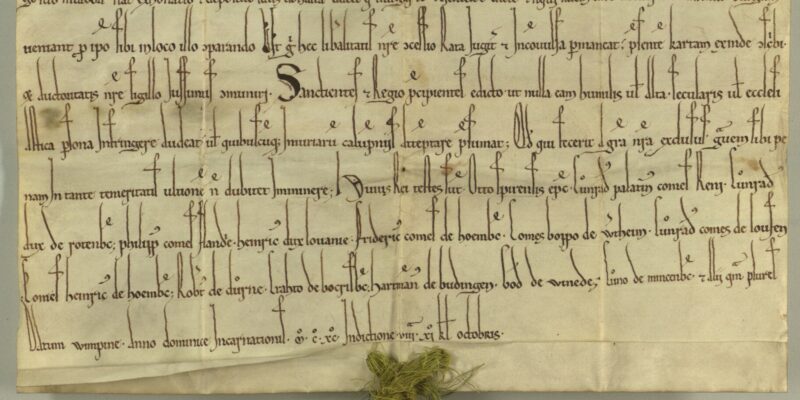 veniant p ipo sibi in loco illo cparando. Ut g hec libalitatis nre cessio Rata Jugit & Inconvulsa pmaneat: psente kartam exinde cscbi
& auctoritatis nre sigillo Jussimus cmuniri. Sanctientes & Regio pcipientes edicto ut nulla eam humilis ul Alta. secularis ul ecclesi
Astica psona Infringere audeat ul quibuscuq; Iniuriaru calupniis atteptare psumat; Qd qui fecerit a gra nra exclusus. gvem sibi pe
nam In tante temeritatis ultione n dubitet Imminere; Huius Rei testes st. Otto spirensis epc. Cunrad palatin comes Reni. Cunrad
dux de rotenbc; philipp comes flandr. heinric dux lovanie. fridericˀ comes de hoembc. Comes boppo de wtheim. Cunrad comes de loufen
Comes heinric de hoembc; Robt de durne. Craft de bocsbc; hartman de budingen. bod de winede; Cuno de mincenbc. & Alii qm plures
Datum wimpine. Anno dominice Incarnationis. m. c. xc. Indictione. viii. xi kl octobris.